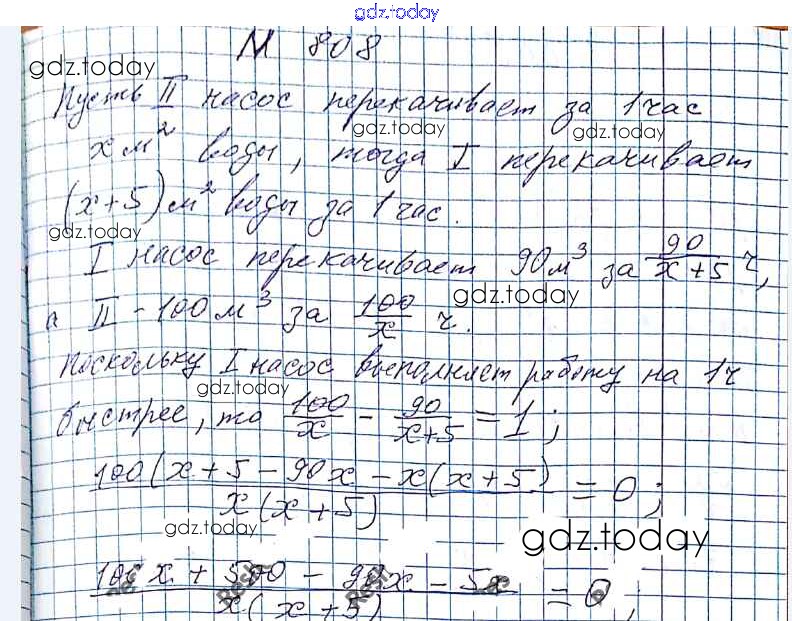 gdz.today
№ 808
gdz.today
Пусть II насос перекачивает за 1 час
gdz.today gdz.today
x м² воды, тогда I перекачивает
(x+5) м² воды за 1 час.
gdz.today
I насос перекачивает 90 м³ за 90/(x+5) ч,
gdz.today
а II - 100 м³ за 100/x ч.
Поскольку I насос выполняет работу на 1 ч
gdz.today
быстрее, то 100/x - 90/(x+5) = 1;
(100(x+5 - 90x - x(x+5))/(x(x+5)) = 0;
gdz.today
gdz.today
(100x + 500 - 90x - 5x)/(x(x+5)) = 0;